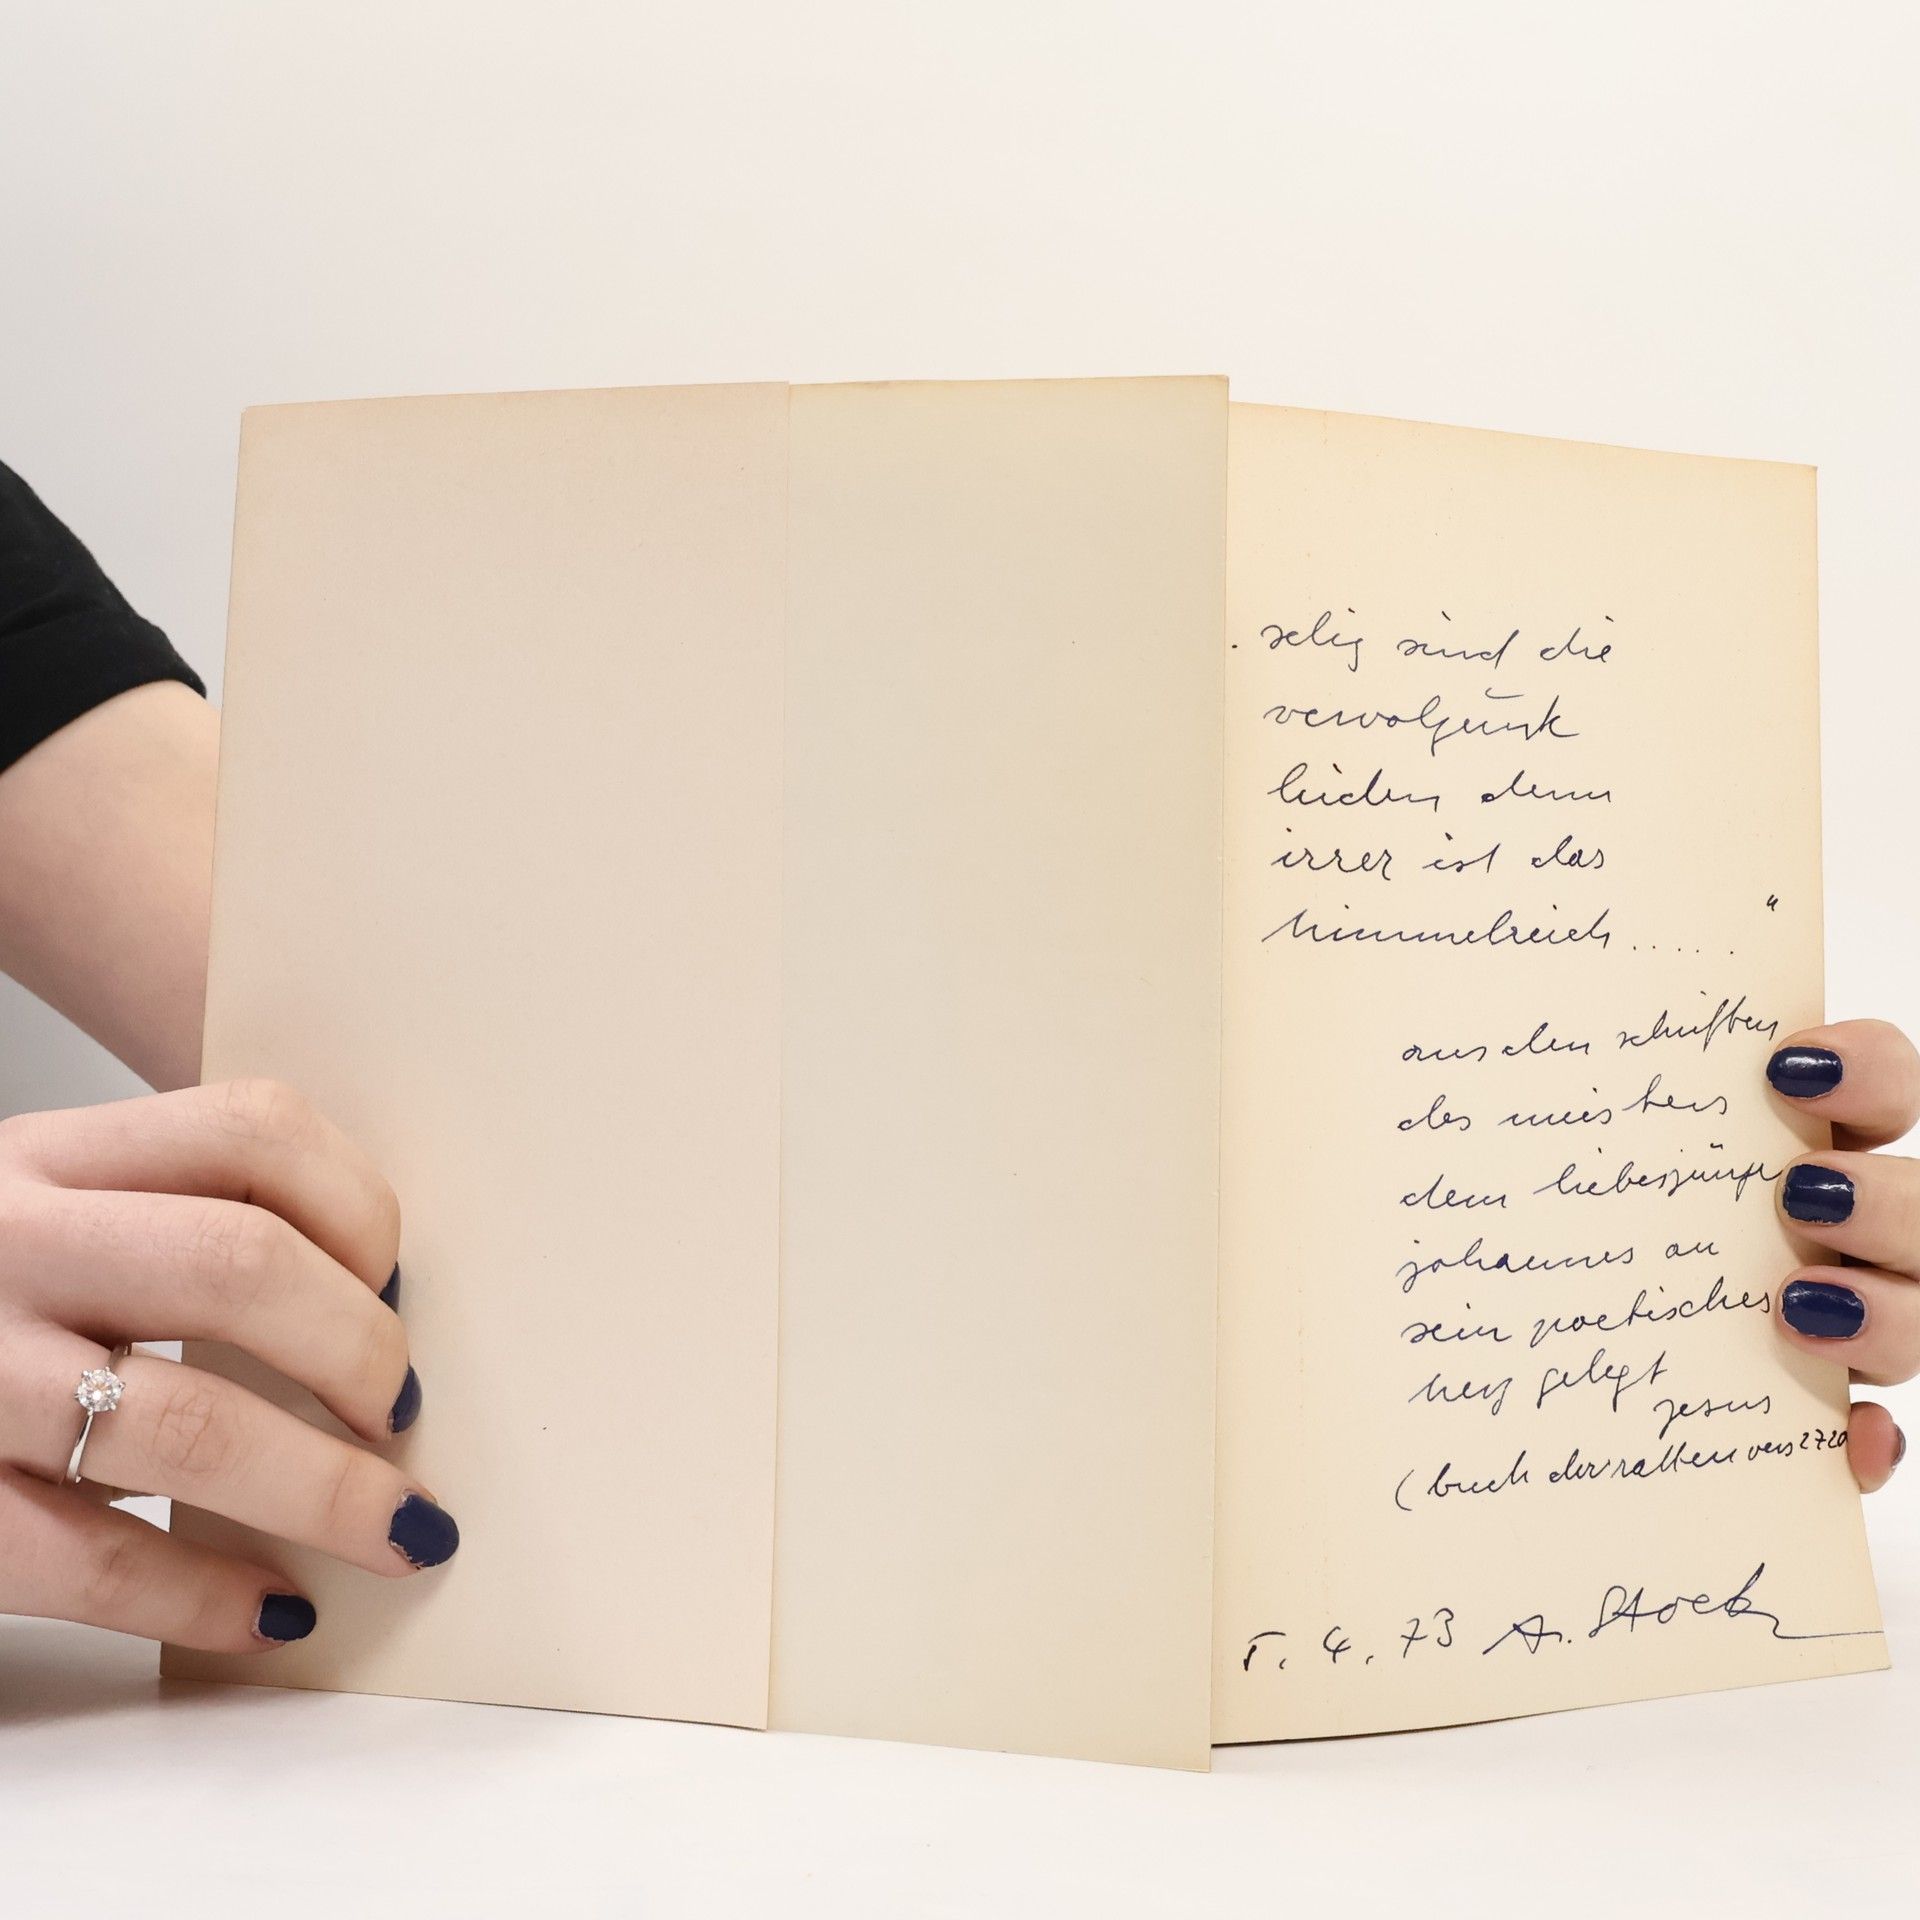 . selig sind die
leiden denn
irrer ist das
himmelreich ..... "
aus den schriften
des meisters
dem liebesjünger
johannes an
sein poetisches
herz gelegt
jesus
( buch der ratten vers 2720
5. 4. 73 A. Stock